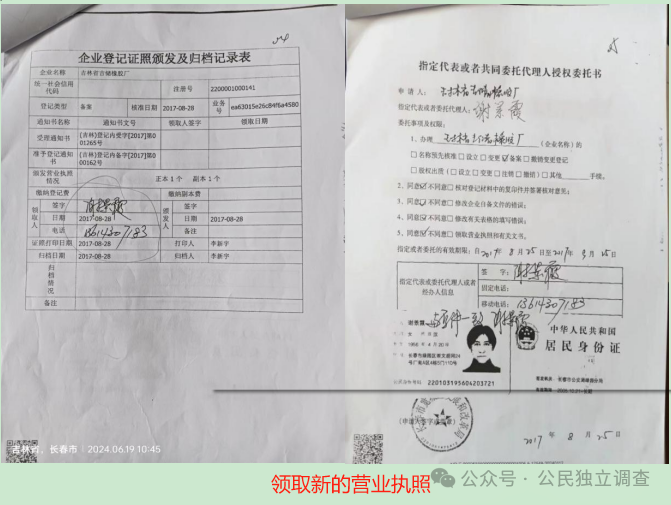 企业登记证照颁发及归档记录表
企业名称 吉林省吉储橡胶厂
统一社会信用代码 注册号 2200001000141
登记类型 备案 核准日期 2017-08-28 业务号 ea63015e26c84f6a4580
通知书名称 通知书文号 领取人签字 领取日期
受理通知书 (吉林)登记内受字[2017]第001265号
准予登记通知书 (吉林)登记内备字[2017]第000162号
颁发营业执照情况 正本1个 副本1个
缴纳登记费 缴纳副本费
领取人 签字 颁发人 签字
日期 2017-08-28 日期 2017-08-28
电话 13614307183 备注
证照打印日期 2017-08-28 打印人 李新宇
归档日期 2017-08-28 归档人 李新宇
归档情况
备注
吉林省，长春市 | 2024.06.19 10:45
指定代表或者共同委托代理人授权委托书
申请人：
指定代表或者委托代理人：
委托事项及权限：
1、办理 (企业名称)的
□名称预先核准 □设立 □变更 ☑备案 □撤销变更登记
□股权出质(□设立 □变更 □注销 □撤销) □其他 手续。
2、同意☑不同意□核对登记材料中的复印件并签署核对意见;
3、同意☑不同意□修改企业自备文件的错误;
4、同意☑不同意□修改有关表格的填写错误;
5、同意☑不同意□领取营业执照和有关文书。
指定或者委托的有效期限：自2017年8月25日至2017年 月25日
指定代表或委托代理人或者经办人信息
签字：
固定电话：
移动电话：13614307183
与原件一致
中华人民共和国
居民身份证
公民身份号码 220103195604203721
2017年8月25日
领取新的营业执照
公众号 · 公民独立调查